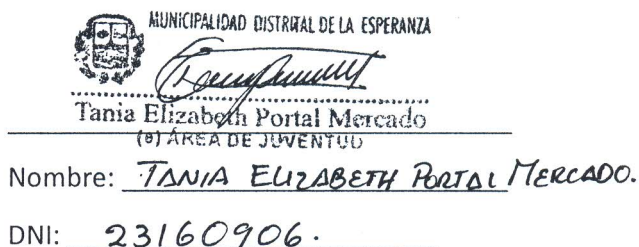 MUNICIPALIDAD DISTRITAL DE LA ESPERANZA
Tania Elizabeth Portal Mercado
(e) ÁREA DE JUVENTUD
Nombre: TANIA ELIZABETH PORTAL MERCADO.
DNI: 23160906.